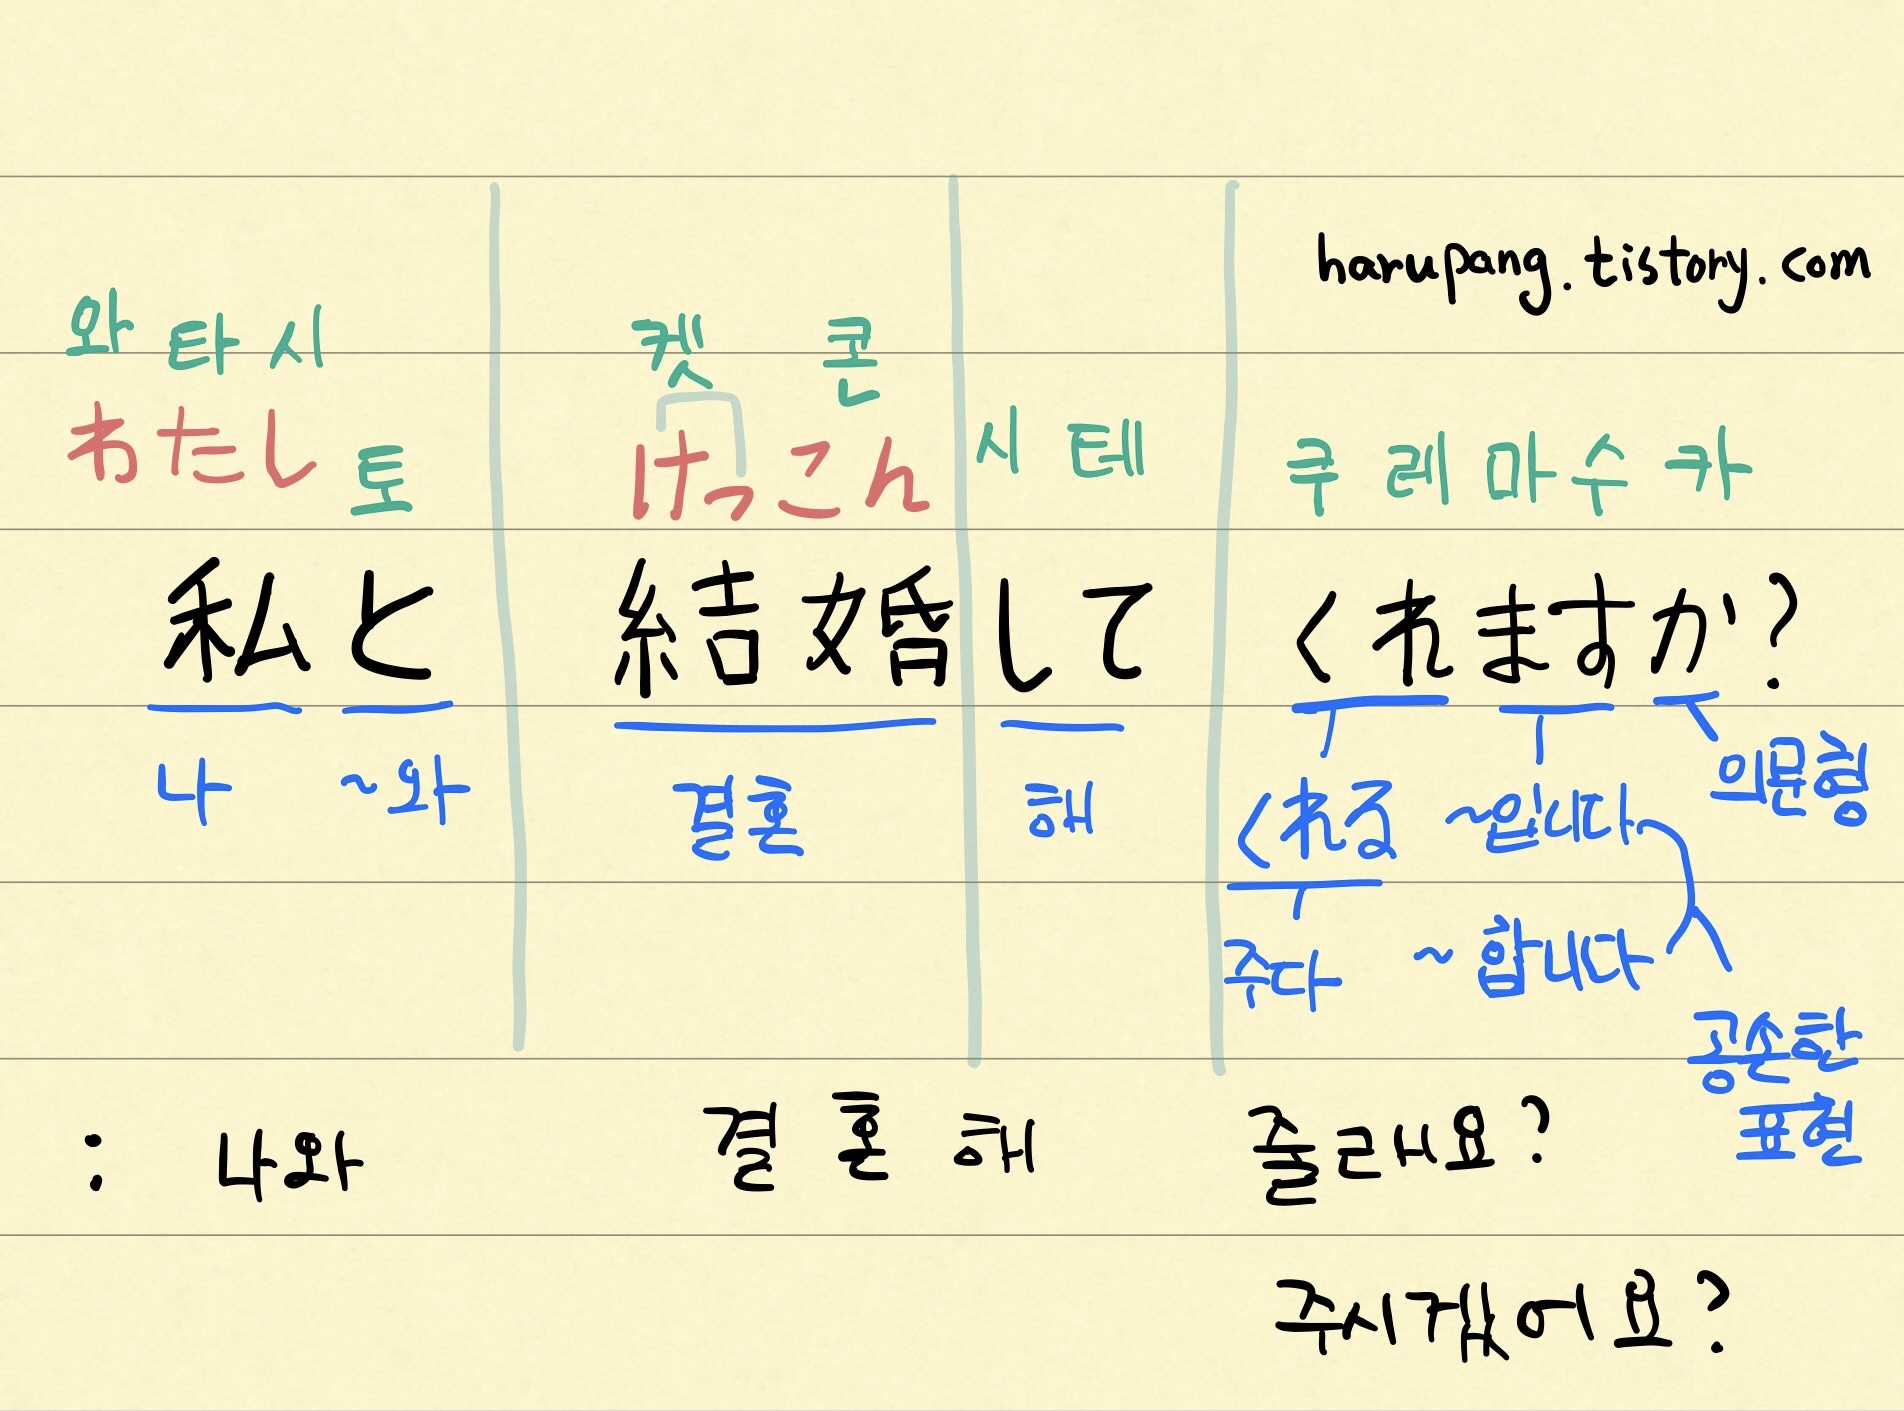 harupang.tistory.com
와타시 켓 콘
わたし 토 けっこん 시 테 쿠 레 마 수 카
私と 結婚して くれますか?
나 ~와 결혼 해 くれる ~입니다 의문형
주다 ~합니다
공손한
표현
: 나와 결혼해 줄래요?
주시겠어요?